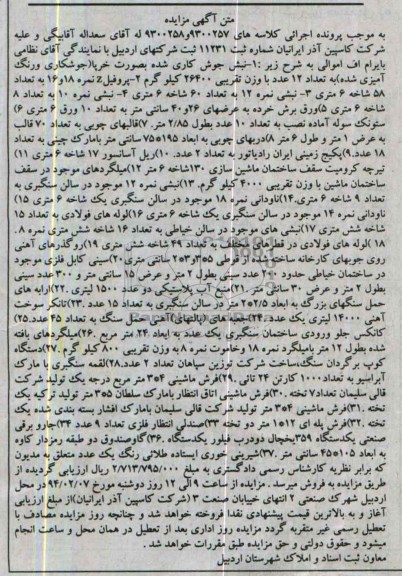 متن آگهی مزایده
به موجب پرونده اجرائی کلاسه های ۹۳۰۰۲۵۷و۹۳۰۰۲۵۸ له آقای سعداله آقابیگی و علیه
شرکت کاسپین آذر ایرانیان شماره ثبت ۱۱۲۳۱ ثبت شرکتهای اردبیل با نمایندگی آقای نظامی
بایرام اف اموالی به شرح زیر :۱-نبش جوش کاری شده بصورت خرپا(جوشکاری ورنگ
آمیزی شده)به تعداد ۱۲ عدد با وزن تقریبی ۲۶۴۰۰ کیلو گرم ۲-پروفیلz نمره ۱۸و۱۶ به تعداد
۵۸ شاخه ۶ متری ۳- نبشی نمره ۱۲ به تعداد ۶۰ شاخه ۶ متری ۴- نبشی نمره ۱۰ به تعداد ۸
شاخه ۶ متری ۵)ورق برش خرده به عرضهای ۲۶و۴۰ سانتی متر به تعداد ۱۰ ورق ۶ متری ۶)
ستونک سوله آماده نصب به تعداد ۱۰ عدد بطول ۲/۸۵ متر ۷)قالبهای چوبی به تعداد ۷۰ قالب
به عرض ۱ متر و طول ۶ متر ۸)دربهای چوبی به ابعاد ۱۹۵*۷۵ سانتی متر بامارک چینی به تعداد
۱۸ عدد.۹)پکیج زمینی ایران رادیاتور به تعداد ۲ عدد. ۱۰)ریل آسانسور ۱۷ شاخه ۶ متری ۱۱)
تیرچه کرومیت سقف ساختمان ماشین سازی ۱۳۰شاخه ۶ متر ۱۲)میلگردهای موجود در سقف
ساختمان ماشین با وزن تقریبی ۴۰۰۰ کیلو گرم. ۱۳)نبشی نمره ۱۲ موجود در سالن سنگبری به
تعداد ۹ شاخه ۶ متری.۱۴)ناودانی نمره ۱۸ موجود در سالن سنگبری یک شاخه ۶ متری ۱۵)
ناودانی نمره ۱۴ موجود در سالن سنگبری یک شاخه ۶ متری ۱۶)لوله های فولادی به تعداد ۱۵
شاخه شش متری ۱۷)نبشی های موجود در سالن خیاطی به تعداد ۱۶ شاخه شش متری نمره ۸ .
۱۸ )لوله های فولادی در قطرهای مختلف به تعداد ۴۹ شاخه شش متری ۱۹)روگذرهای آهنی
روی جوبهای کارخانه ساخته شده از قوطی ۵*۳و۳*۲ سانتی متری ۲۰)سینی کابل فلزی موجود
در ساختمان خیاطی حدود ۲۰۰ عدد سینی بطول ۲ متر و عرض ۱۵ سانتی متر و ۳۰۰عدد سینی
بطول ۲ متر و عرض ۳۰ سانتی متر .۲۱)منبع آب پلاستیکی دو عدد ۱۵۰۰ لیتری .۲۲)ارابه های
حمل سنگهای بزرگ به ابعاد ۲/۵*۲ متر در سالن سنگبری به تعداد ۱۵ عدد .۲۳)تانکر سوخت
آهنی ۱۴۰۰۰ لیتری یک عدد.۲۴)سیدهای (پالتهای)آهنی حمل سنگ به تعداد ۴۵ عدد.۲۵)
کانکس جلو ورودی ساختمان سنگبری یک عدد به ابعاد ۴*۲ متر مربع .۲۶)میلگردهای بافته
شده بطول ۱۲ متر بامیلگرد نمره ۱۸ وخاموت نمره ۸ به وزن تقریبی ۸۰۰ کیلو گرم .۲۷)دستگاه
کوپ برگردان سنگ،ساخت شرکت توزین سپاهان تعداد ۲ عدد.۲۸)لقمه سنگبری با مارک
آبراسیو به تعداد ۱۰۰۰ کارتن ۲۴ تائی .۲۹)فرش ماشینی ۴*۳ متر مربع درجه یک تولید شرکت
قالی سلیمان تعداد۷ تخته .۳۰)فرش ماشینی اتاق انتظار بامارک سلطان ۵*۳ متر تولید ترکیه یک
تخته .۳۱)فرش ماشینی ۴*۳ متر تولید شرکت قالی سلیمان بامارک افشار بسته بندی شده یک
تخته .۳۲)فرش پله ای ۱۲*۱ متر دو تخته ۳۳)صندلی انتظار فلزی تعداد ۹ عدد ۳۴)جارو برقی
صنعتی یکدستگاه ۳۵)یخچال دودرب فیلور یکدستگاه .۳۶)گاوصندوق دو طبقه رمزدار کاوه
به ابعاد ۱۰۵*۴۵ سانتی متر .۳۷)شیرینی خوری ایستاده طلائی رنگ یک عدد متعلق به مدیون
که برابر نظریه کارشناس رسمی دادگستری به مبلغ ۲/۷۱۳/۷۹۵/۰۰۰ ریال ارزیابی گردیده از
طریق مزایده به فروش میرسد . مزایده از ساعت ۹ الی ۱۲ روز دوشنبه مورخ ۹۴/۰۲/۰۷ در محل
اردبیل شهرک صنعتی ۲ انتهای خیابان صنعت ۳ (شرکت کاسپین آذر ایرانیان)از مبلغ ارزیابی
آغاز و به بالاترین قیمت پیشنهادی نقدا فروخته خواهد شد و چنانچه روز مزایده مصادف با
تعطیل رسمی غیر متقربه گردد مزایده روز اداری بعد از تعطیل در همان محل و ساعت انجام
میشود و حقوق دولتی و حق مزایده طبق مقررات خواهد شد .
معاون ثبت اسناد و املاک شهرستان اردبیل